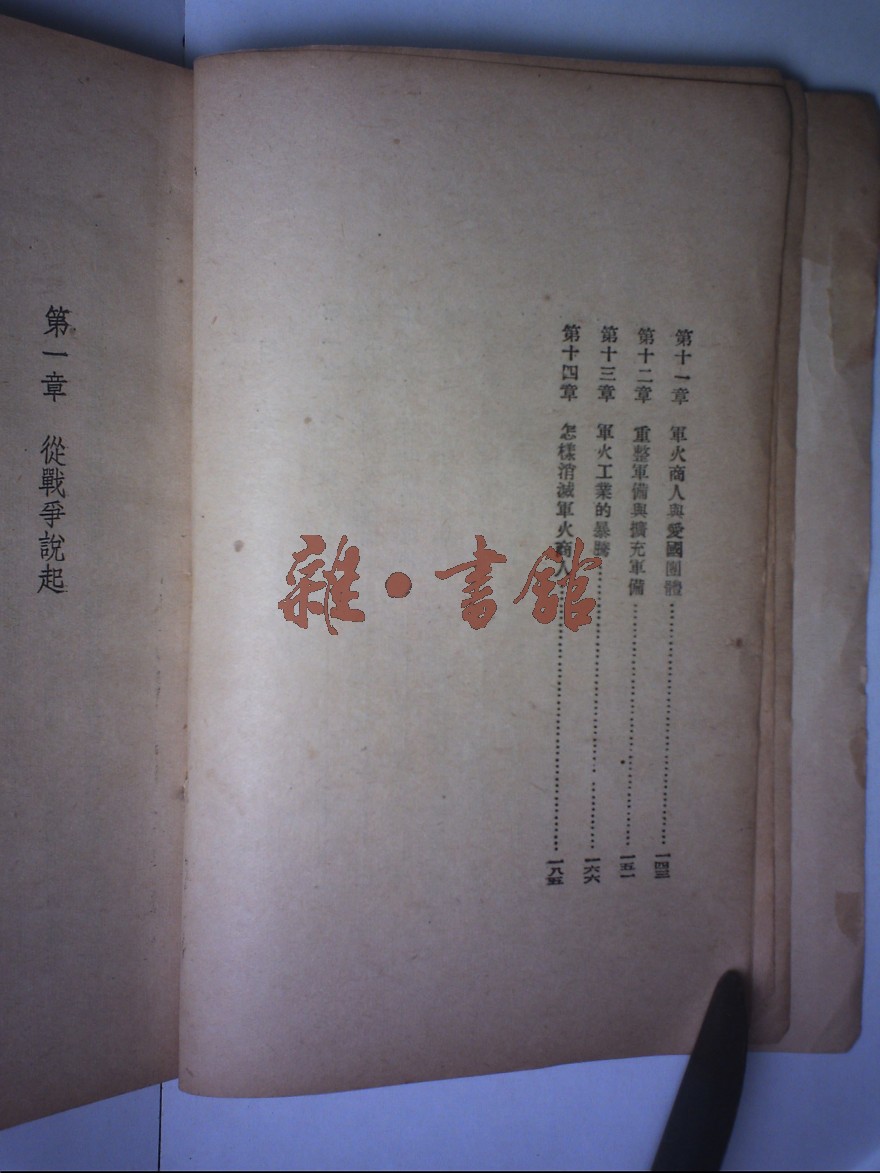 第十一章 軍火商人與愛國團體……一四三
第十二章 重整軍備與擴充軍備……一五一
第十三章 軍火工業的暴騰……一六六
第十四章 怎樣消滅軍火商人……一八五
第一章 從戰爭說起
雜·書館